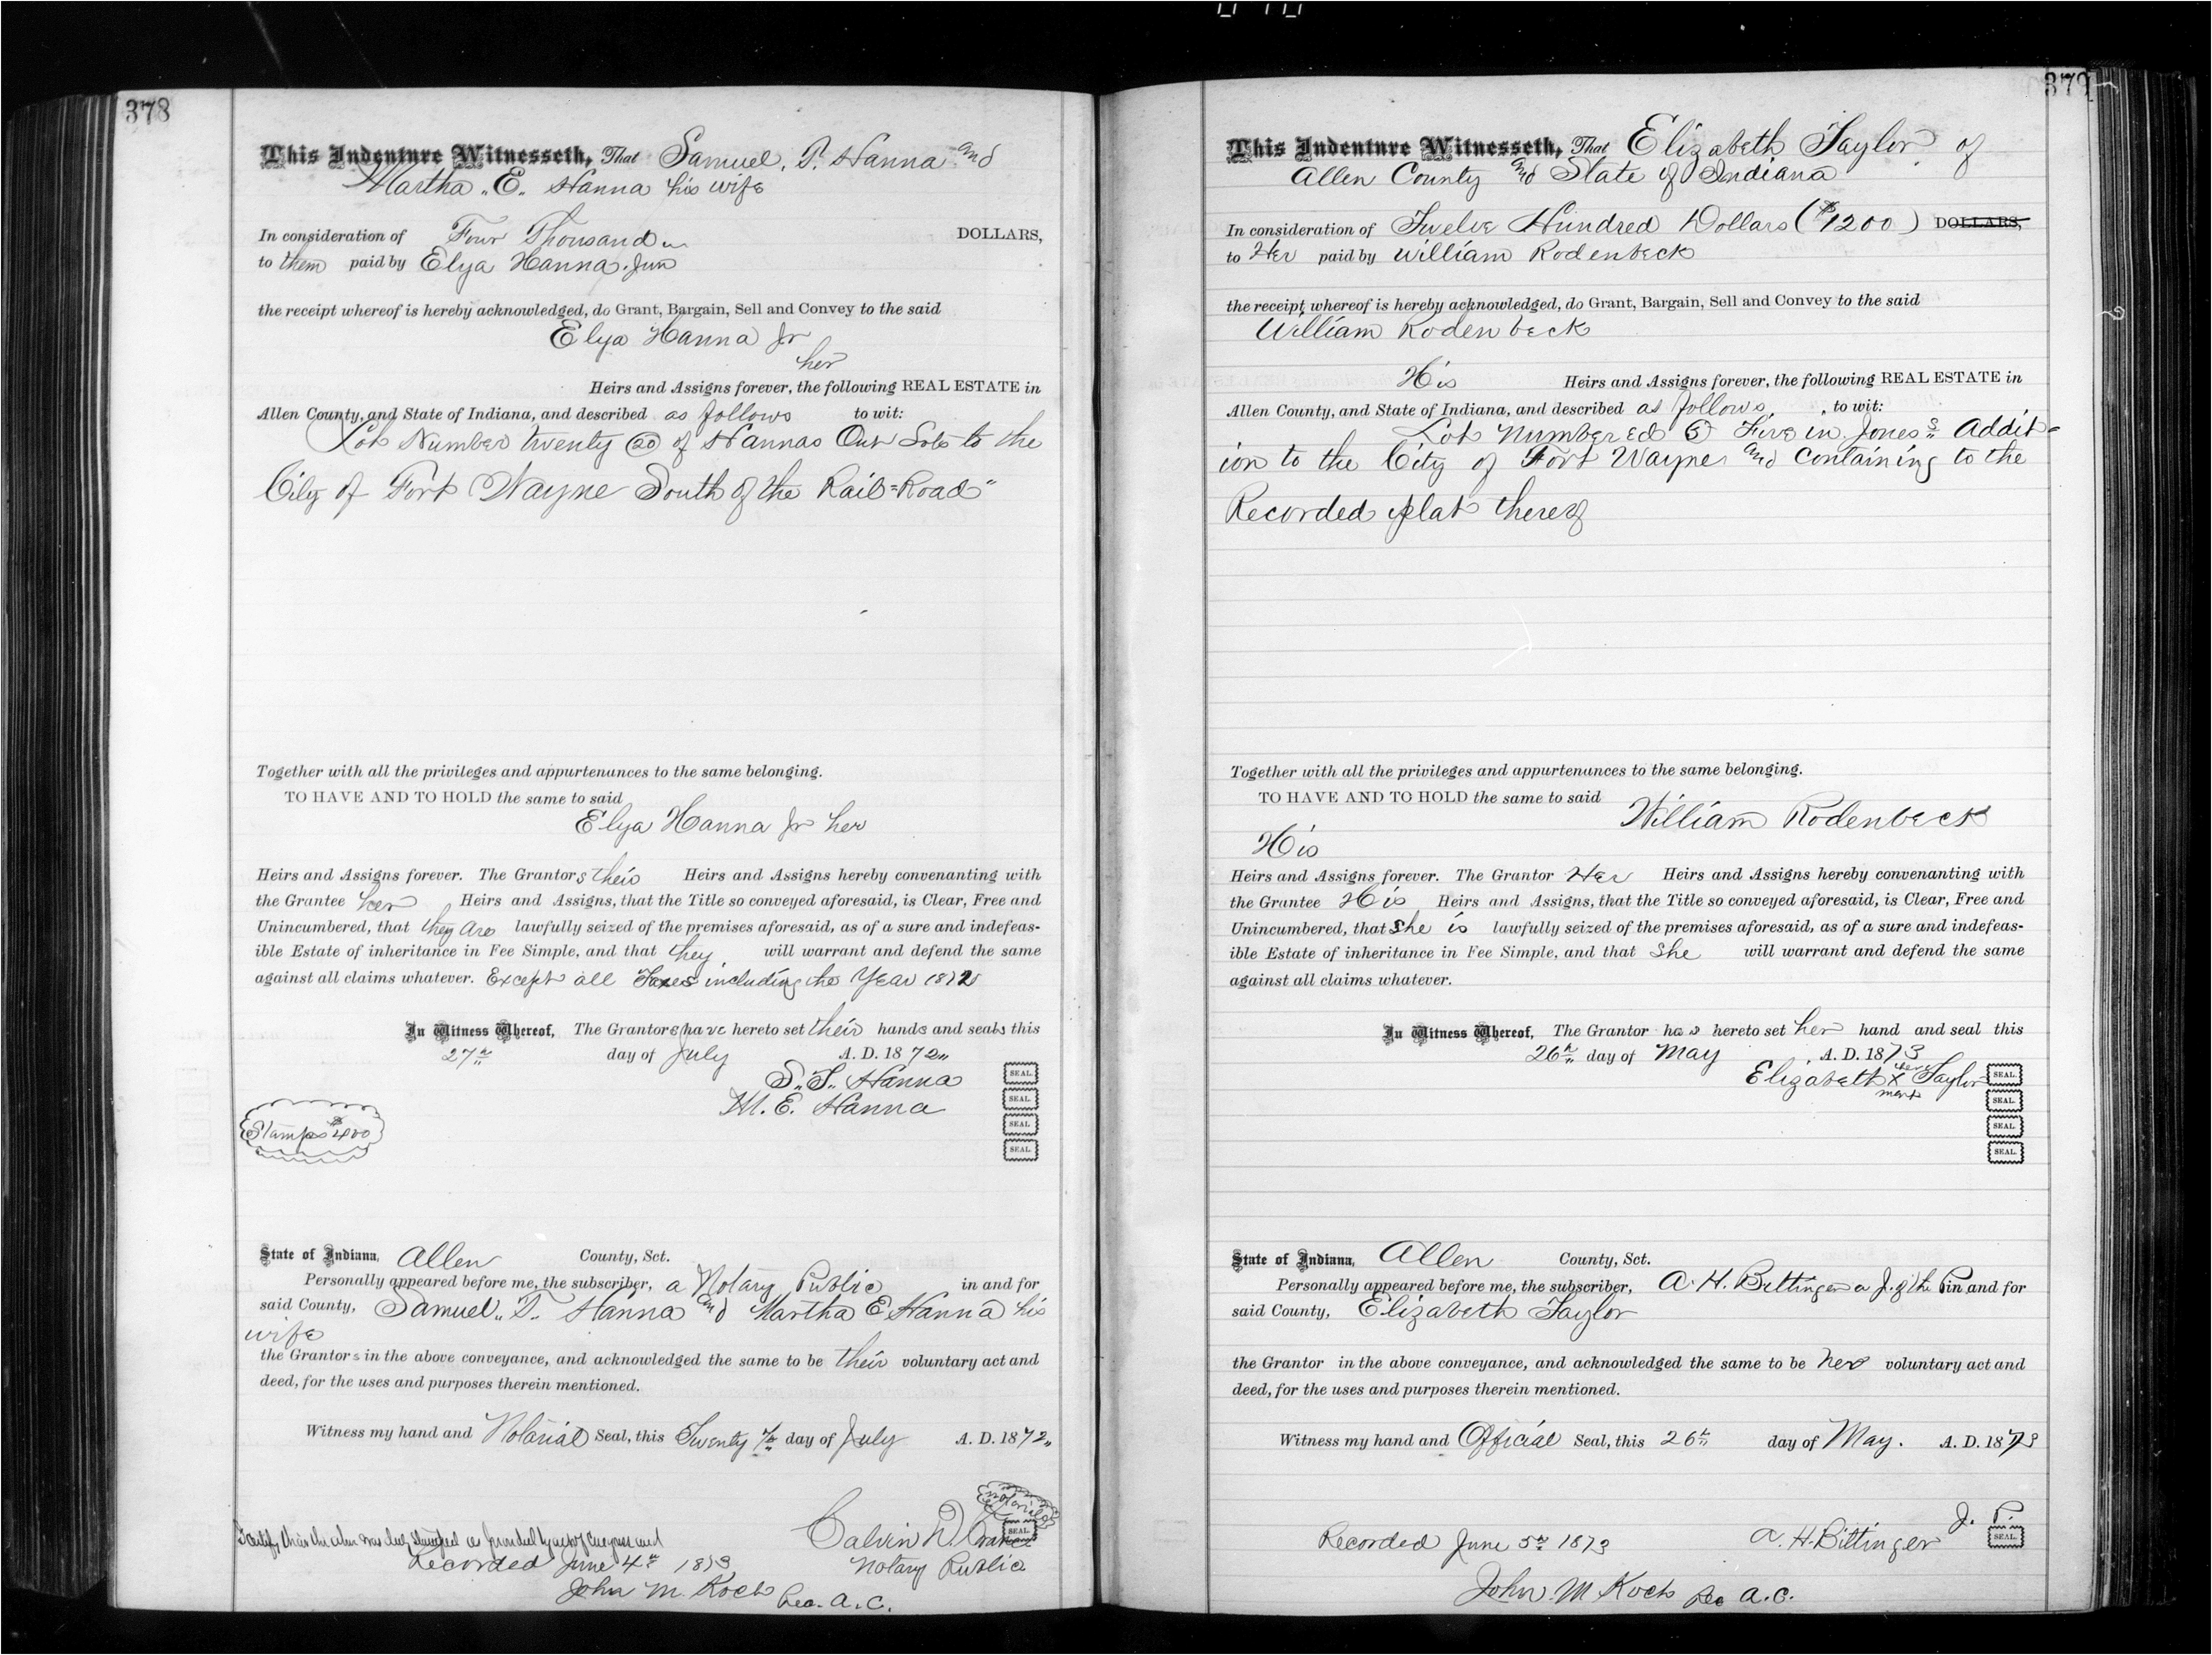 378
This Indenture Witnesseth, That Samuel. T. Hanna and
Martha "E" Hanna his wife
In consideration of Four Thousand DOLLARS,
to them paid by Elya Hanna. Jun
the receipt whereof is hereby acknowledged, do Grant, Bargain, Sell and Convey to the said
Elya Hanna Jr
her
Heirs and Assigns forever, the following REAL ESTATE in
Allen County, and State of Indiana, and described as follows to wit:
Lot Number twenty (20) of Hannas Out Lots to the
City of Fort Wayne South of the Rail=Road"
Together with all the privileges and appurtenances to the same belonging.
TO HAVE AND TO HOLD the same to said
Elya Hanna Jr her
Heirs and Assigns forever. The Grantors their Heirs and Assigns hereby convenanting with
the Grantee her Heirs and Assigns, that the Title so conveyed aforesaid, is Clear, Free and
Unincumbered, that they are lawfully seized of the premises aforesaid, as of a sure and indefeas-
ible Estate of inheritance in Fee Simple, and that they will warrant and defend the same
against all claims whatever. Except all Taxes including the Year 1872
In Witness Whereof, The Grantors have hereto set their hands and seals this
27th day of July A. D. 1872"
S. T. Hanna SEAL.
M. E. Hanna SEAL.
SEAL.
SEAL.
Stamps $4.00
State of Indiana, Allen County, Sct.
Personally appeared before me, the subscriber, a Notary Public in and for
said County, Samuel. T. Hanna and Martha E Hanna his
wife
the Grantors in the above conveyance, and acknowledged the same to be their voluntary act and
deed, for the uses and purposes therein mentioned.
Witness my hand and Notarial Seal, this Twenty 7th day of July A. D. 1872"
Notarial
SEAL
Calvin D.
I certify that the above was duly stamped as provided by act of Congress and
Recorded June 4th 1873
Notary Public
John M. Koch Rec. A. C.
379
This Indenture Witnesseth, That Elizabeth Taylor of
Allen County and State of Indiana
In consideration of Twelve Hundred Dollars ($1200) DOLLARS,
to Her paid by William Rodenbeck
the receipt whereof is hereby acknowledged, do Grant, Bargain, Sell and Convey to the said
William Rodenbeck
His Heirs and Assigns forever, the following REAL ESTATE in
Allen County, and State of Indiana, and described as follows, to wit:
Lot Numbered (5) Five in Jones's Addit=
ion to the City of Fort Wayne and containing to the
Recorded plat thereof
Together with all the privileges and appurtenances to the same belonging.
TO HAVE AND TO HOLD the same to said William Rodenbeck
His
Heirs and Assigns forever. The Grantor Her Heirs and Assigns hereby convenanting with
the Grantee His Heirs and Assigns, that the Title so conveyed aforesaid, is Clear, Free and
Unincumbered, that She is lawfully seized of the premises aforesaid, as of a sure and indefeas-
ible Estate of inheritance in Fee Simple, and that She will warrant and defend the same
against all claims whatever.
In Witness Whereof, The Grantor has hereto set her hand and seal this
26th day of May A. D. 1873
Elizabeth her X mark Taylor SEAL.
SEAL.
SEAL.
SEAL.
State of Indiana, Allen County, Sct.
Personally appeared before me, the subscriber, A. H. Bittinger a J. of the P in and for
said County, Elizabeth Taylor
the Grantor in the above conveyance, and acknowledged the same to be her voluntary act and
deed, for the uses and purposes therein mentioned.
Witness my hand and Official Seal, this 26th day of May. A. D. 1873
J. P.
Recorded June 5th 1873 A. H. Bittinger SEAL.
John M Koch Rec A. C.